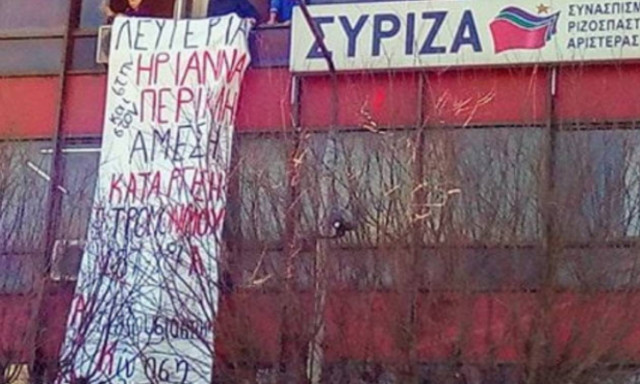 ΛΕΥΤΕΡΙΑ
και στη
ΗΡΙΑΝΝΑ
στον
ΠΕΡΙΚΛΗ
ΑΜΕΣΗ
ΚΑΤΑΡΓΗΣΗ
ΤΡΟΜΟΝΟΜΟΥ
187
ΣΥΡΙΖΑ
ΣΥΝΑΣΠΙΣΜ
ΡΙΖΟΣΠΑΣΤ
ΑΡΙΣΤΕΡΑΣ